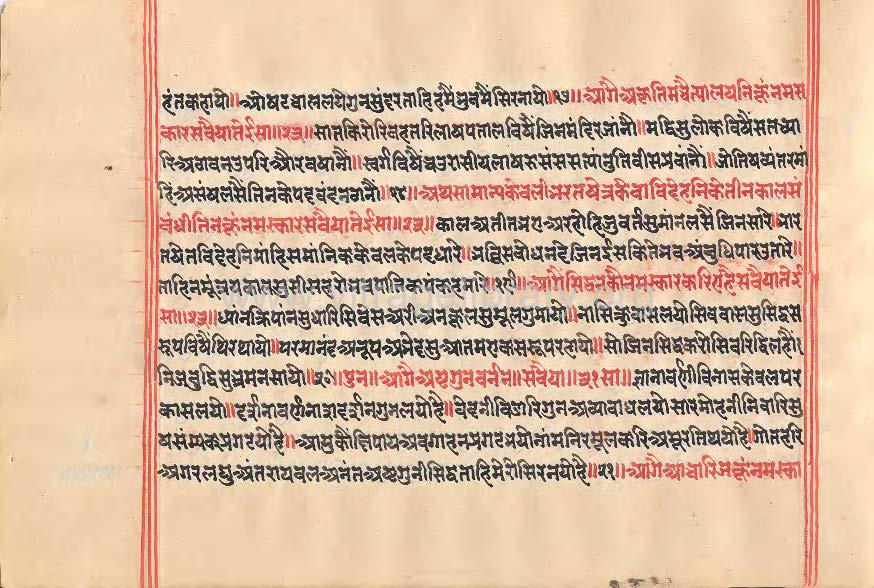 हंतकहायो॥श्रीषटवालललयेगुनसुंदरताहिहमैंध्रुवमैंसिरनायो॥१७॥आगैअकृतिमचैत्यालयनिकूंनमस
कारसवैयातेईसा॥२३॥सातकिरोरिबहतरिलाषपतालविषैंजिनमंदिरजांनौं॥मद्धिसुलोकविषैंसतच्या
रिअठावनउपरिऔरबषानौं॥स्वर्गविषैंचउरासीयलाषरुसंससत्यांनुतिवीसप्रवांनौं॥जोतिषव्यंतरमां
हिंअसंषलसैंतिनकेपदवंदनठानौं॥१८॥अथसामान्यकेवलीभरतषेत्रकेवाविदेहनिकेतीनकालसं
बंधीतिनकूंनमस्कारसवैयातेईसा॥२३॥कालअतीतअरुअरहोहिजुवर्तसुमांनलसैंजिनसारे॥भार
तषेतविदेहनिमांहिसमांनिककेवलकेपदधारे॥भविसंबोधनदेजिनईसकितेभवअंबुधिपारउतारे॥
ताहिनमूंजयकालसुसीसदरोभवपातिकपंकहमारे॥१९॥आगैंसिद्धनकौंनमस्कारकरिहहैसवैयातेई
सा॥२३॥ध्यानक्रिपांनसुधारिसिवेसअरीअनकूलसुमूलगुमायो॥नासिकुवासलयोसिववाससुसिद्धस
रूपविषैथिरथायो॥परमानंदअनूपअभेदसुआतमएकसरूपरहायो॥सोजिनसिद्धकरोसिवरिद्धिलहौं।
निजबुद्धिसुभ्रमनसायो॥२०॥पुन॥आगैअष्टगुनवर्नन॥सवैया॥३१सा॥ज्ञानावर्णीविनासकेवलपर
कासलयो॥दर्शनावर्णनासदर्शनगुनलयोहै॥वेदनीविडारिगुनअव्याबाधलयोसारमोहनीनिवारिसु
धसंम्यकप्रगटयोहै॥आयुकौंक्षिपायअवगाहनप्रगटभयोनांमनिरमूलकरिअमूरतिथयोहै॥गोतहरि
अगरलघुअंतरायबलअनंतअष्टगुनीसिद्धताहिमेरोसिरनयोहै॥२१॥आगैआचारिजकूंनमस्का